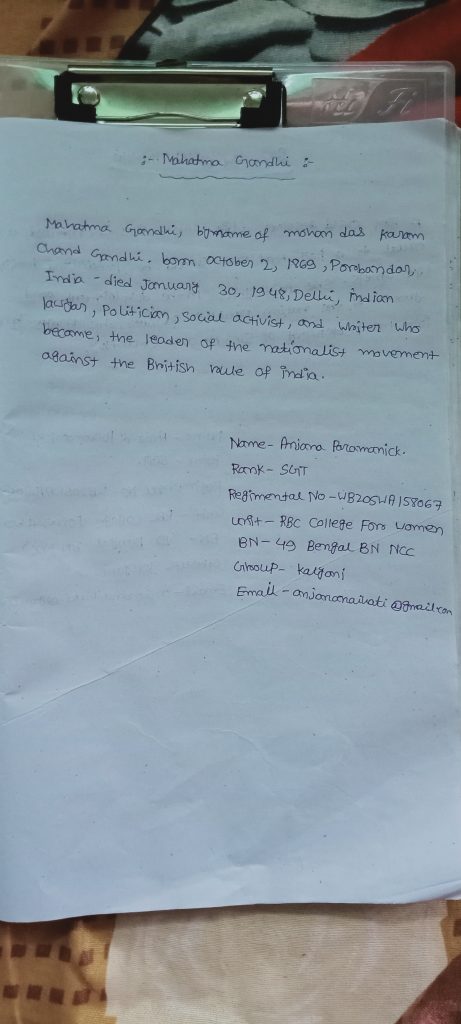 :- Mahatma Gandhi :-
Mahatma Gandhi, byname of mohan das karam
Chand Gandhi. born October 2, 1869, Porbandar,
India - died January 30, 1948, Delhi, indian
lawyar, Politician, Social activist, and writer who
became, the leader of the nationalist movement
against the British rule of india.
Name - Anjana Paramanick.
Rank - SGT
Regimental No - WB20SWA158067
unit - RBC College For women
BN - 49 Bengal BN NCC
Group - kalyani
Email -